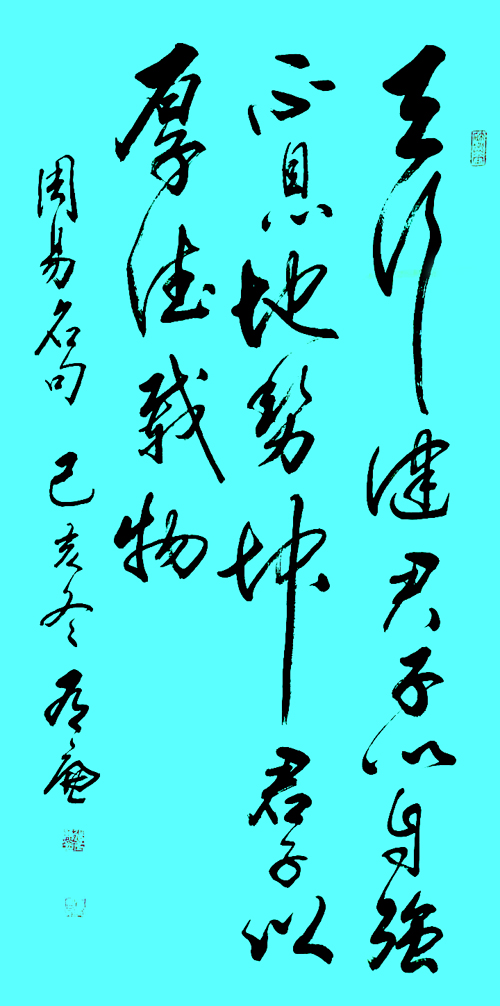 天行健君子以自強
不息地勢坤君子以
厚德载物
周易名句 己亥冬